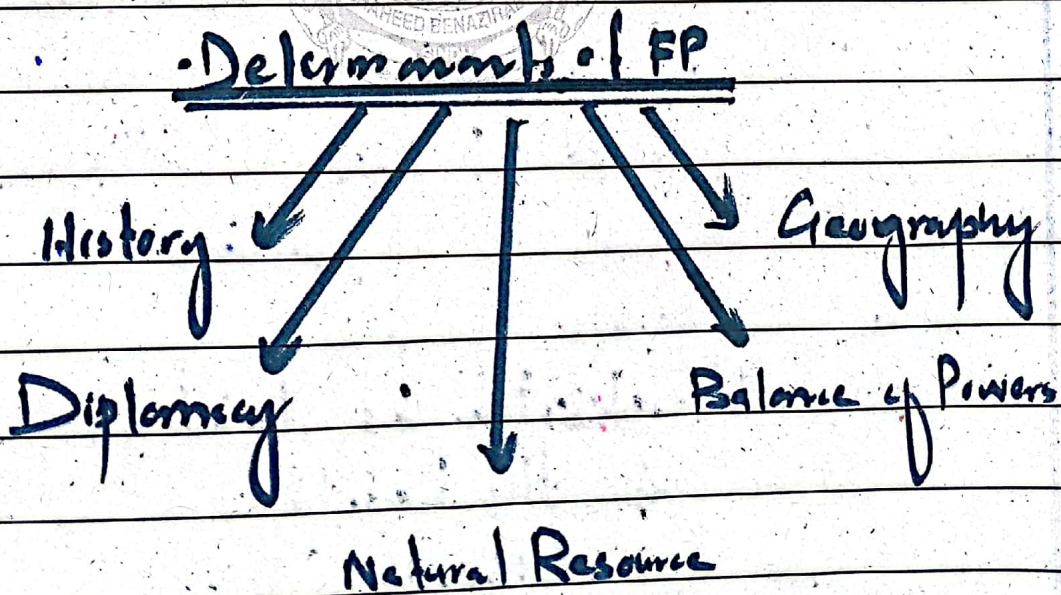 SHAHEED BENAZIRAB
.Determinants of FP
History
Geography
Diplomacy
Balance of Powers
Natural Resource